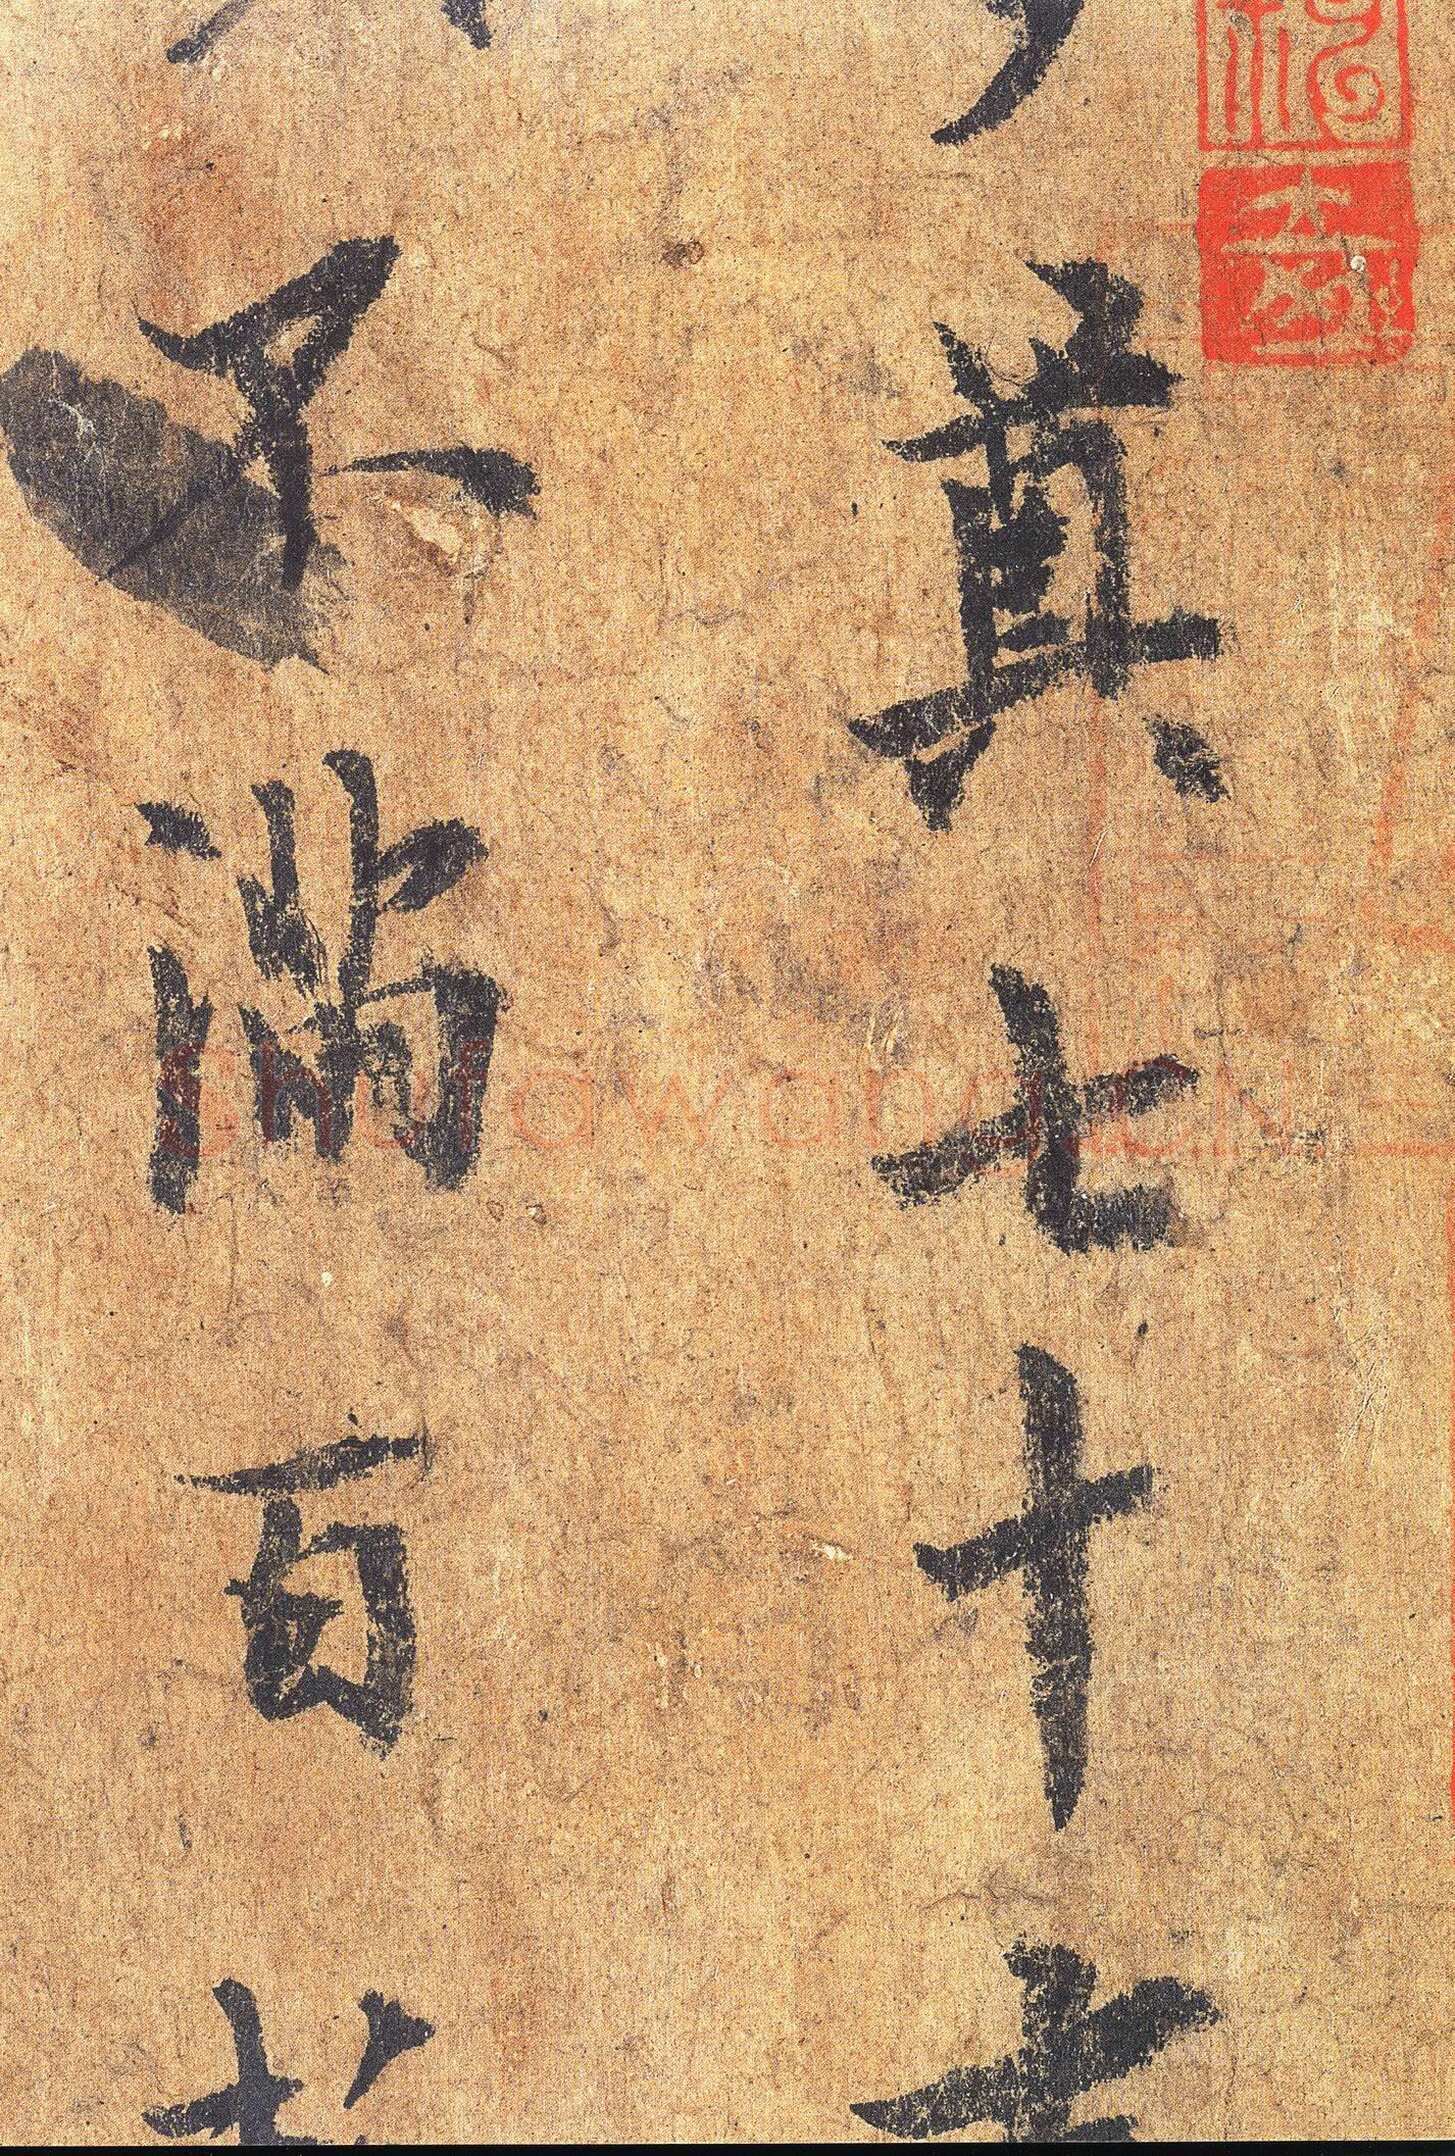 奠七十
不滿百
Shufawang.CN